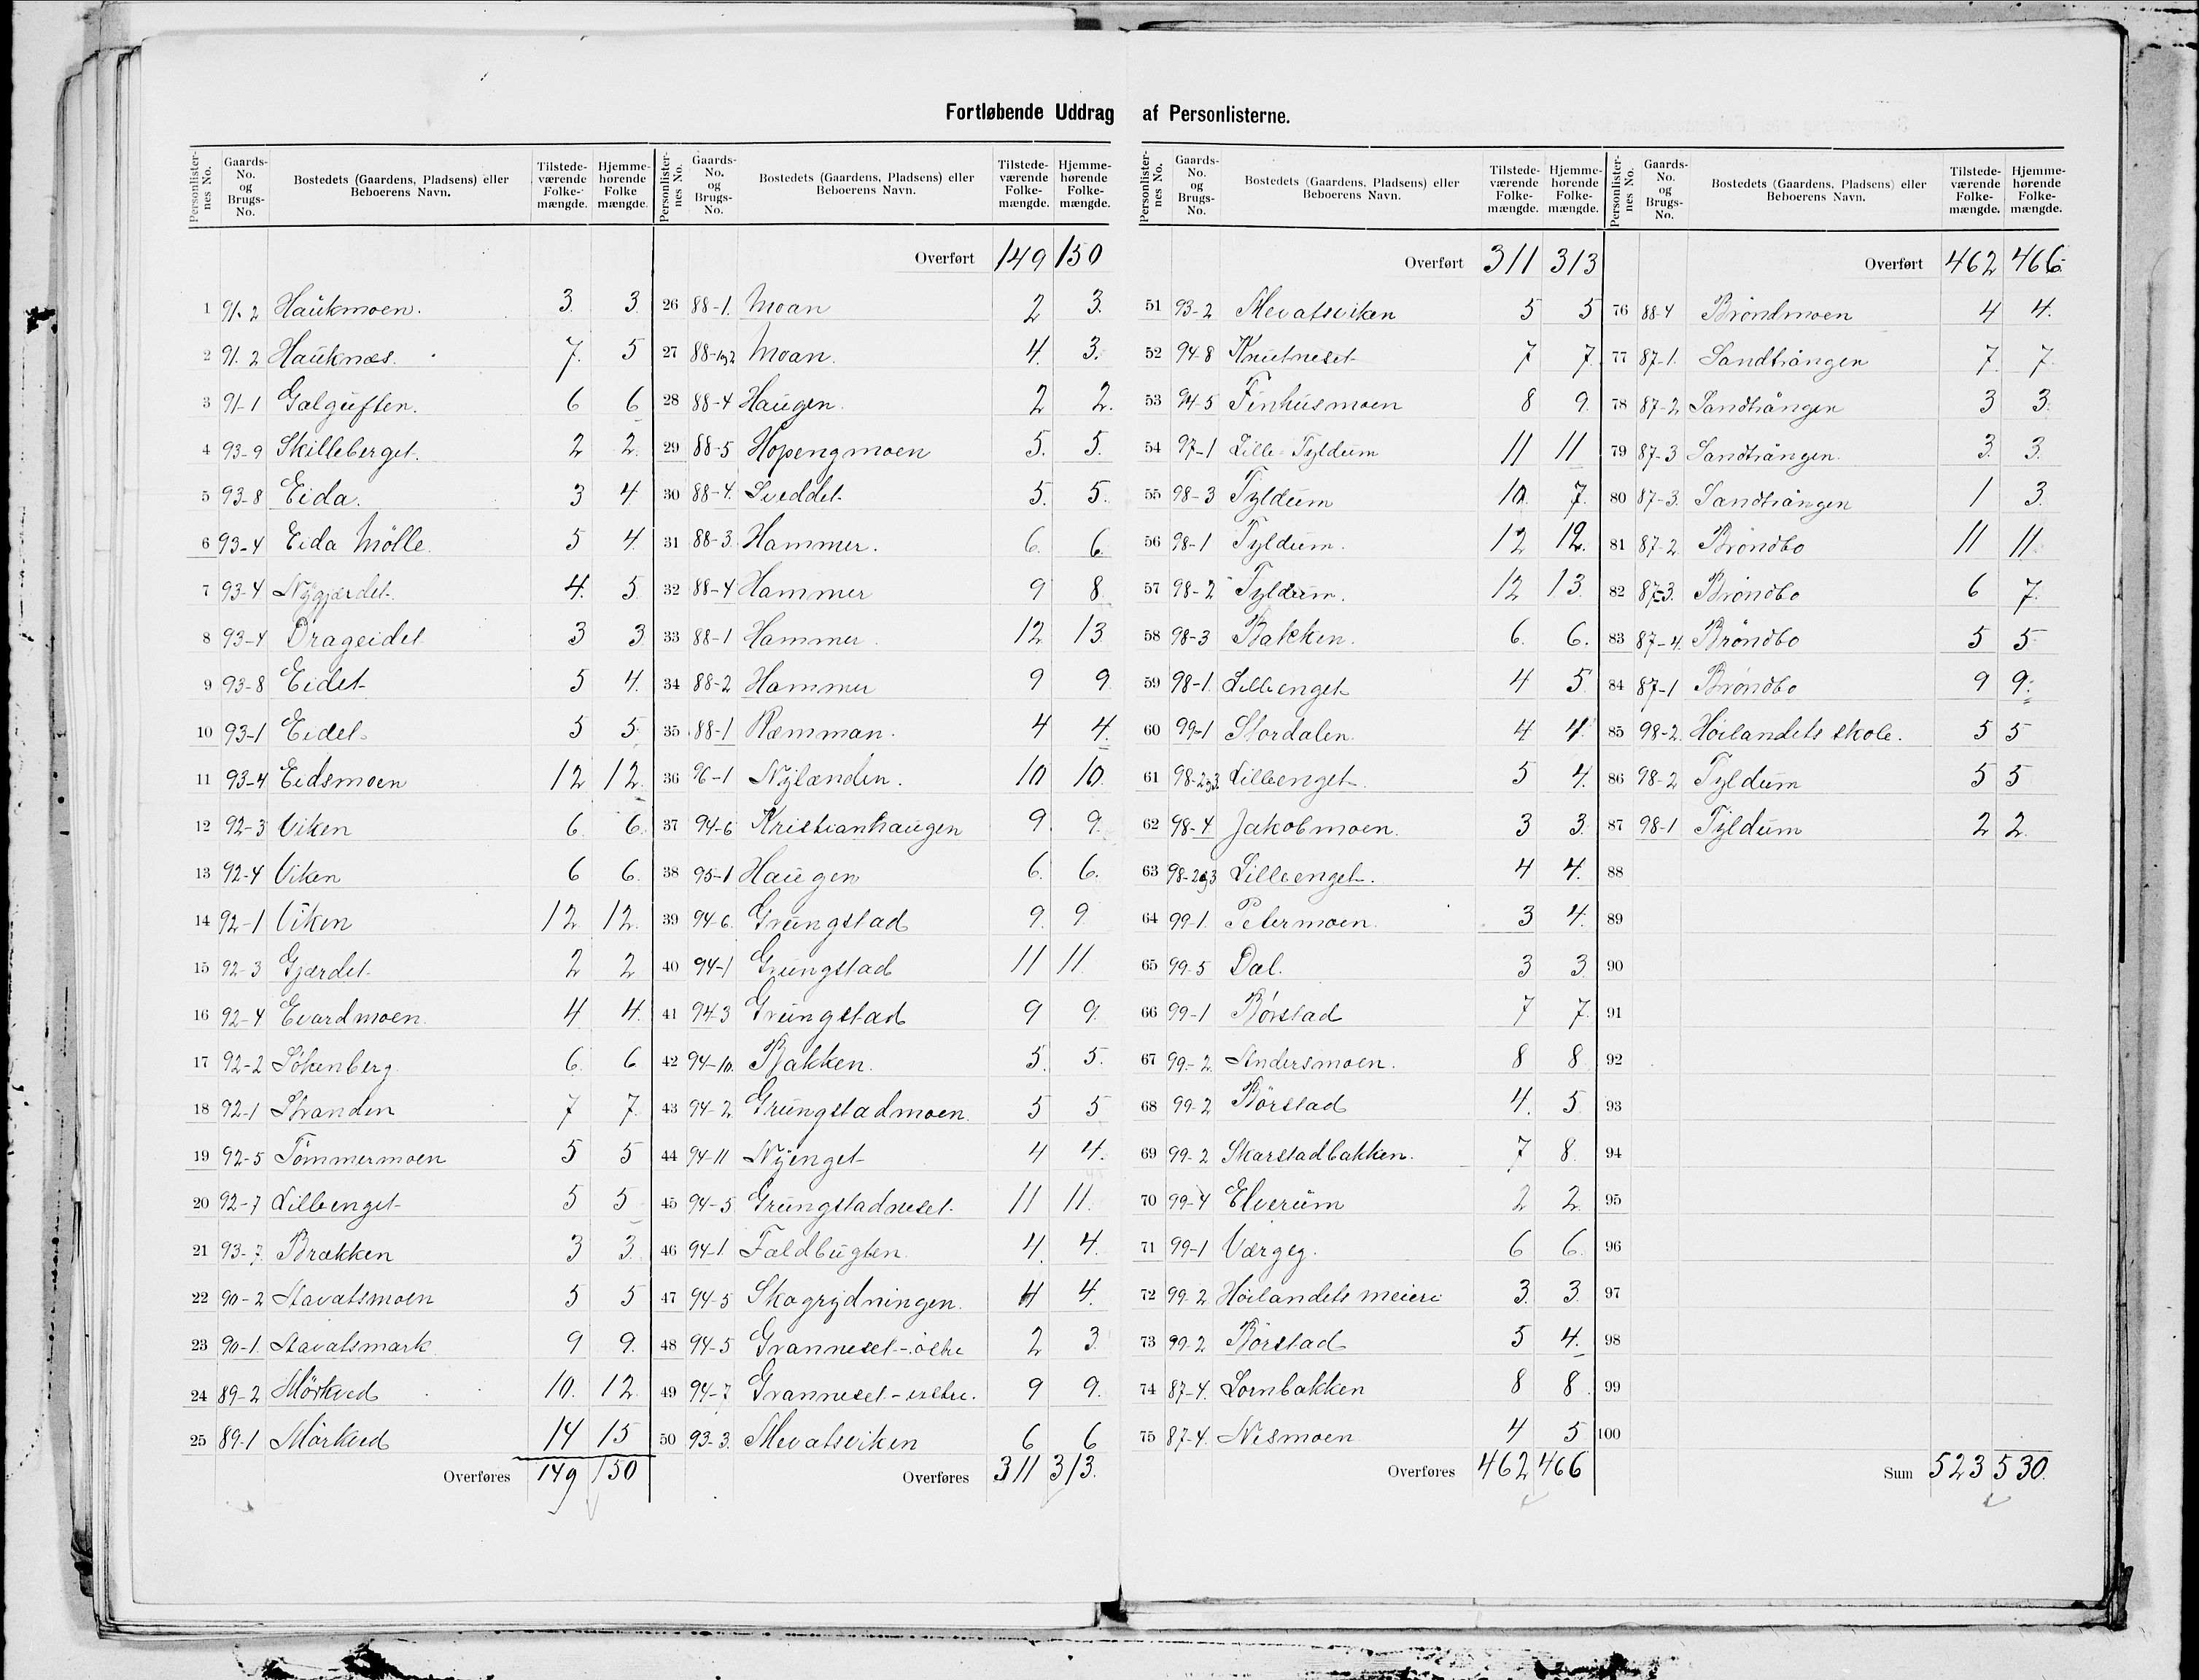 Fortløbende Uddrag af Personlisterne.
Personlister-nes No. Gaards-No. og Brugs-No. Bostedets (Gaardens, Pladsens) eller Beboerens Navn. Tilstede-værende Folke-mængde. Hjemme-hørende Folke mængde.
1 91-2 Haukmoen. 3 3
2 91-2 Hauknæs. 7. 5
3 91-1 Galguften. 6 6
4 93-9 Skilleberget. 2 2
5 93-8 Eida. 3 4
6 93-4 Eida Mölle. 5 4
7 93-4 Nygjærdet. 4. 5
8 93-4 Drageidet 3 3
9 93-8 Eidet 5 4.
10 93-1 Eidet 5 5
11 93-4 Eidsmoen 12 12
12 92-3 Viken 6 6
13 92-4 Viken 6 6
14 92-1 Viken 12 12
15 92-3 Gjærdet 2 2
16 92-4 Evardmoen 4 4
17 92-2 6 6
18 92-1 Stranden 7 7
19 92-5 Tømmermoen 5 5
20 92-7 Lillenget 5 5
21 93-7 Brækken 3 3
22 90-2 Aavatsmoen 5 5
23 90-1 Aavatsmark 9 9.
24 89-2 Mörkved 10. 12
25 89-1 Mörkved 14 15
Overføres 149 150
Personlister-nes No. Gaards-No. og Brugs-No. Bostedets (Gaardens, Pladsens) eller Beboerens Navn. Tilstede-værende Folke-mængde. Hjemme-hørende Folke-mængde.
Overført 149 150
26 88-1. Moan 2 3.
27 88-1og2 Moan. 4. 3.
28 88-4 Haugen. 2 2.
29 88-5 Hopengmoen 5. 5.
30 88-4. Sveddet 5. 5.
31 88-3. Hammer. 6. 6
32 88-4 Hammer 9 8.
33 88-1 Hammer. 12 13
34 88-2 Hammer 9 9
35 88-1 Ræmman. 4 4.
36 96-1 Nylænden. 10 10
37 94-6 Kristianhaugen 9 9.
38 95-1 Haugen 6. 6.
39 94-6. Grungstad 9. 9
40 94-1 Grungstad 11 11
41 94-3 Grungstad 9 9.
42 94-10. Bakken. 5. 5.
43 94-2 Grungstadmoen. 5 5
44 94-11 Nyenget 4 4.
45 94-5 Grungstadneset. 11 11.
46 94-1 Faldbugten. 4. 4.
47 94-5 Skogrydningen. 4 4.
48 94-5 Granneset-östre 2 3
49 94-7 Granneset-vestre. 9 9.
50 93-3. Mevatsviken 6 6
Overføres 311 313.
Personlister-nes No. Gaards-No. og Brugs-No. Bostedets (Gaardens, Pladsens) eller Beboerens Navn. Tilstede-værende Folke-mængde. Hjemme-hørende Folke-mængde.
Overført 311 313
51 93-2 Mevatsviken 5 5
52 94-8 Knutneset 7 7.
53 94-5 Finhusmoen 8 9.
54 97-1 Lille-Tyldum 11 11
55 98-3 Tyldum 10. 7.
56 98-1 Tyldum. 12 12.
57 98-2 Tyldum. 12 13.
58 98-3 Bakken. 6. 6.
59 98-1. Lillenget 4 5
60 99-1 Stordalen. 4 4.
61 98-2og3 Lillenget. 5 4.
62 98-4 Jakobmoen. 3 3.
63 98-2og3 Lillenget. 4 4.
64 99-1. Petermoen. 3 4.
65 99-5 Dal. 3 3.
66 99-1 Börstad 7 7.
67 99-2. Andersmoen. 8 8
68 99-2 Börstad 4. 5
69 99-2 Skarstadbakken. 7 8.
70 99-4 Elverum 2 2.
71 99-1 6 6.
72 99-2 Höilandets meieri 3. 3.
73 99-2 Börstad 5 4.
74 87-4. Lornbakken 8 8.
75 87-4. Nesmoen 4 5
Overføres 462 466
Personlister-nes No. Gaards-No. og Brugs-No. Bostedets (Gaardens, Pladsens) eller Beboerens Navn. Tilstede-værende Folke-mængde. Hjemme-hørende Folke-mængde.
Overført 462 466
76 88-4 Bröndmoen 4 4.
77 87-1. Sandtrången 7 7
78 87-2 Sandtrången 3 3.
79 87-3 Sandtrången 3. 3.
80 87-3. Sandtrången 1 3.
81 87-2. Bröndbo 11 11
82 87-3. Bröndbo 6 7.
83 87-4. Bröndbo 5 5
84 87-1 Bröndbo 9 9.
85 98-2. Höilandets skole. 5 5
86 98-2 Tyldum 5 5
87 98-1 Tyldum 2 2.
88
89
90
91
92
93
94
95
96
97
98
99
100
Sum 523 530.